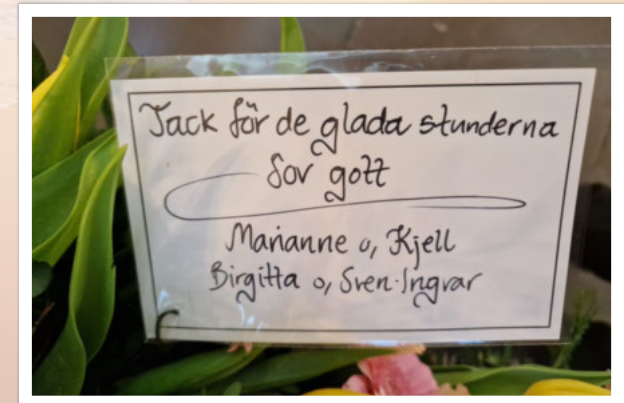 Tack för de glada stunderna
Sov gott
Marianne o, Kjell
Birgitta o, Sven-Ingvar